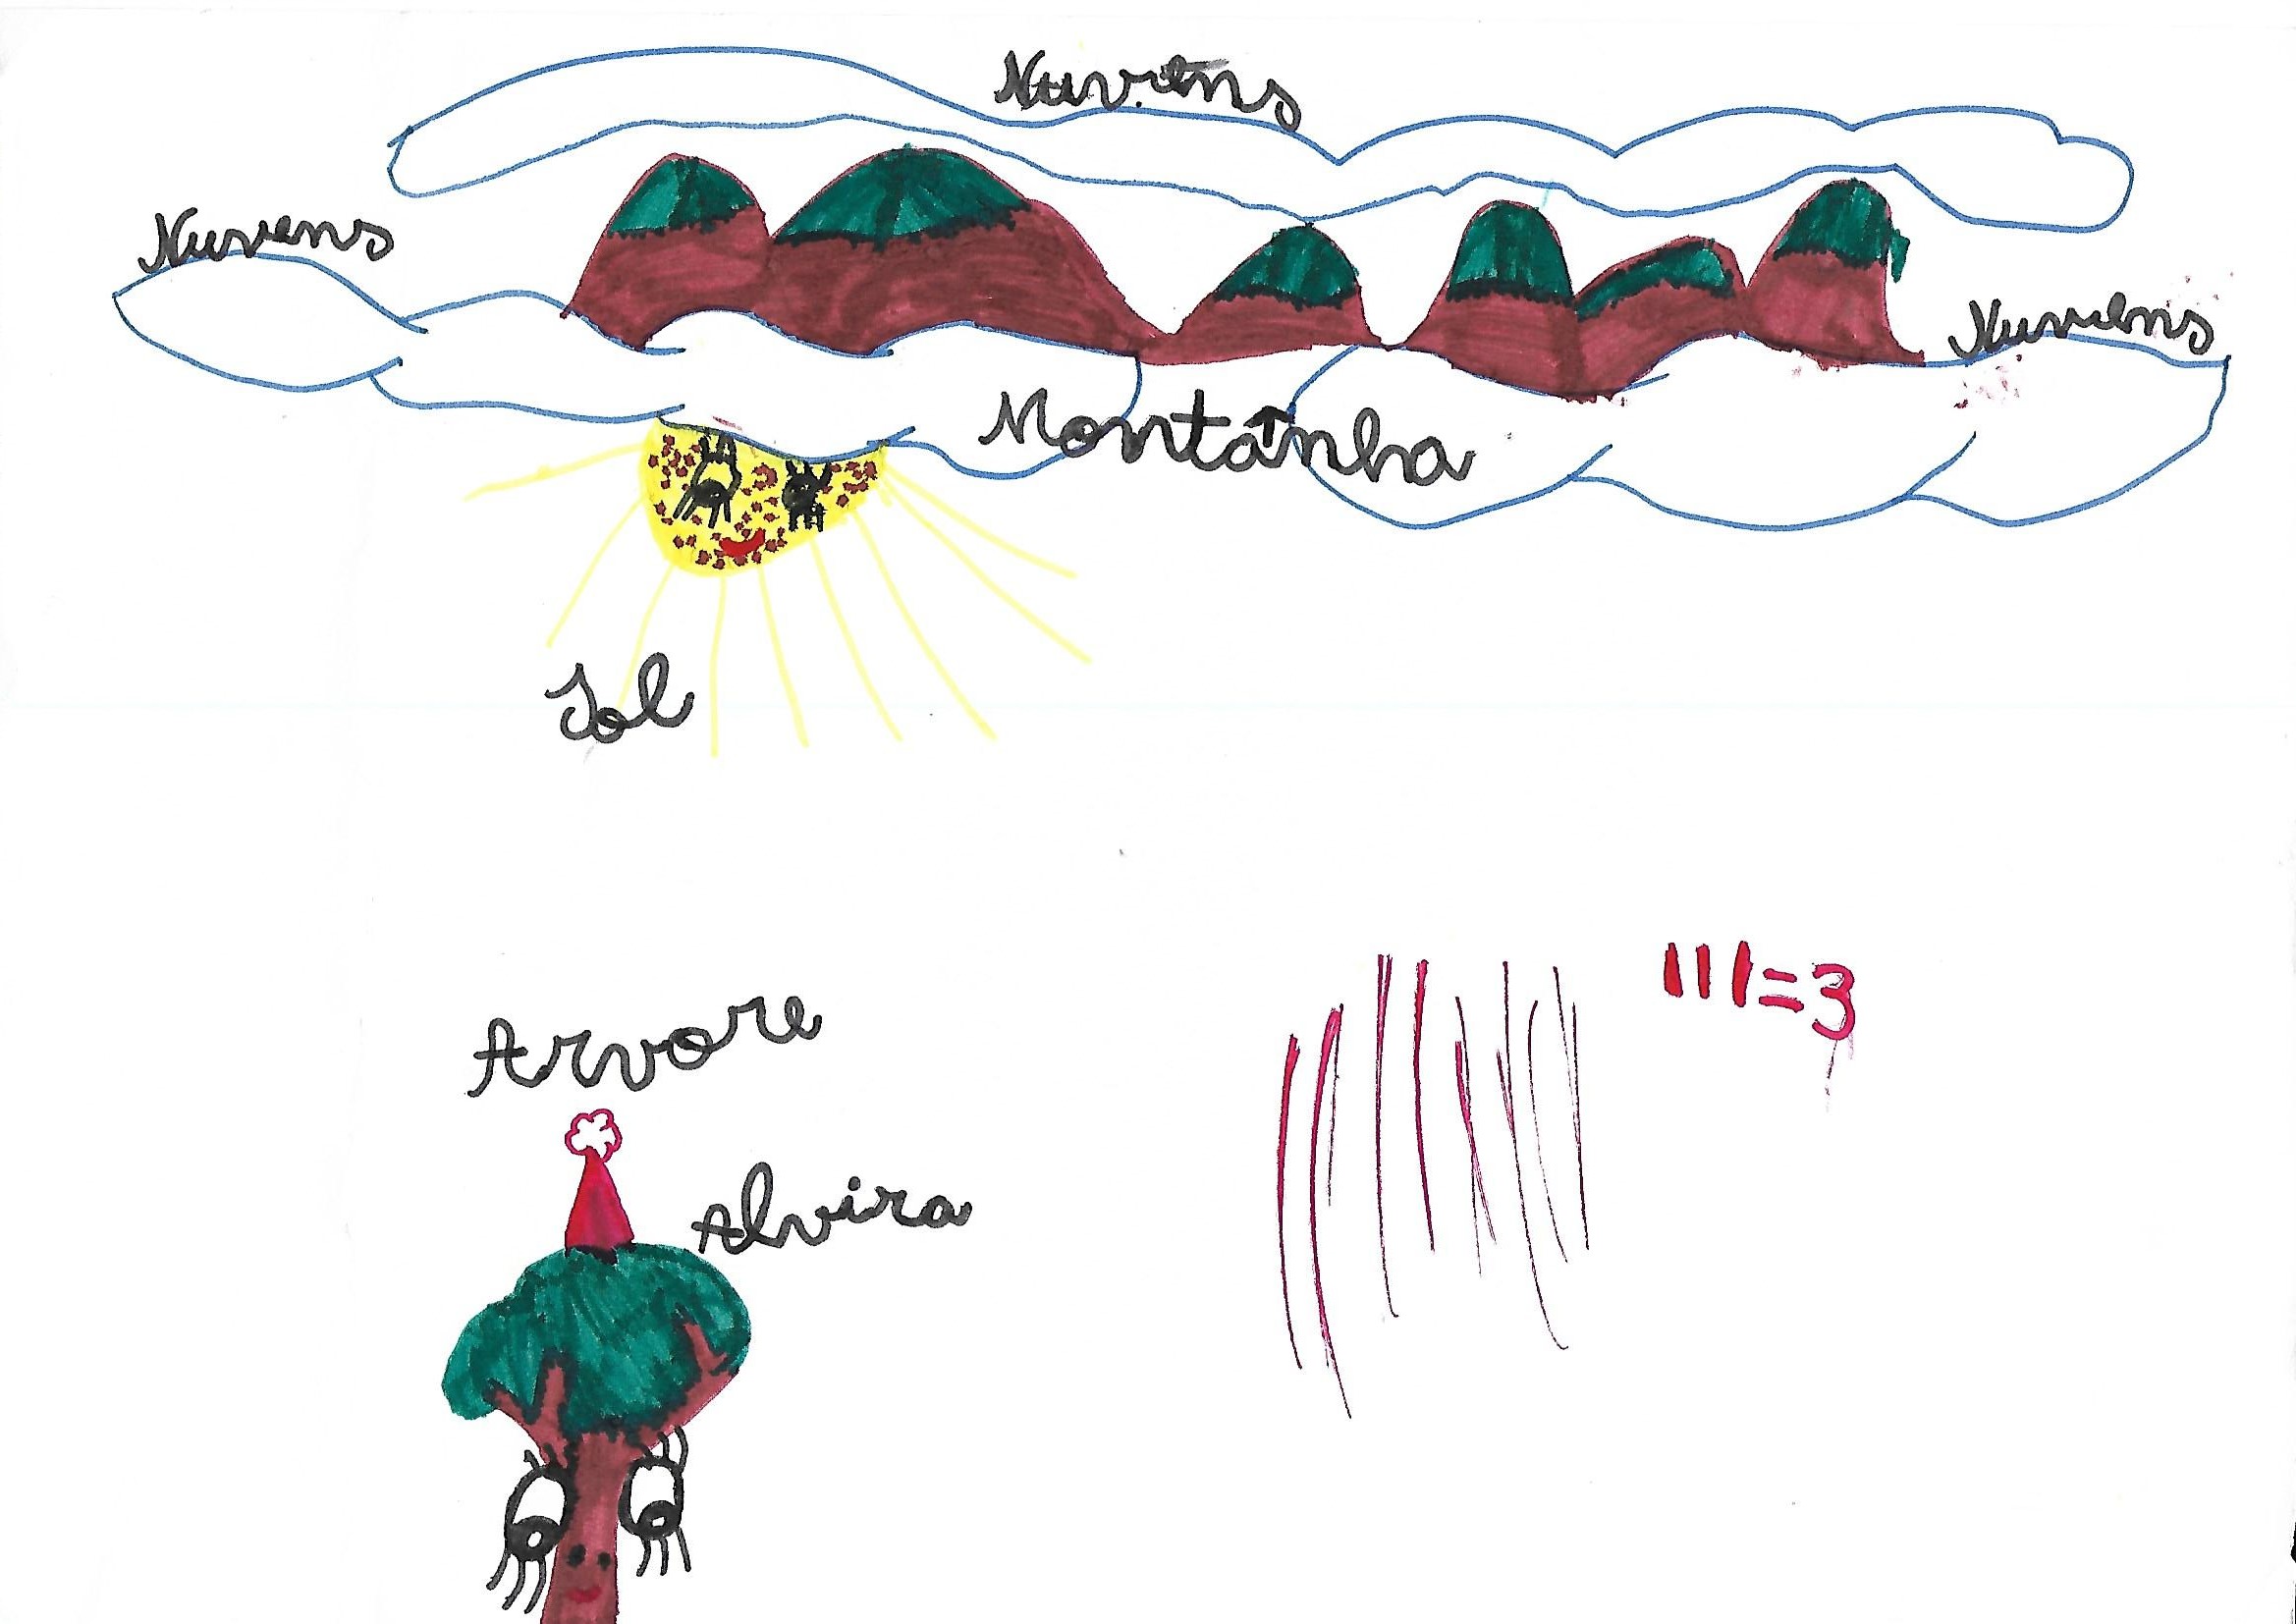 Nuvens
Nuvens
Nuvens
Montânha
Sol
Arvore
Alvira
III=3